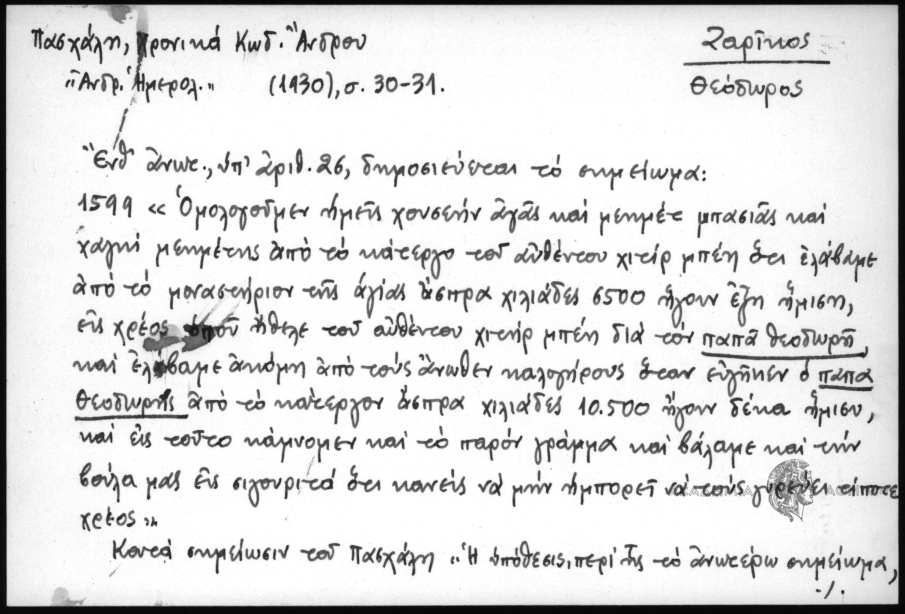 Πασχάλη, χρονικά Κωδ. Ἄνδρου
Ζαρῖκος
"Ἀνδρ. Ἡμερολ." (1930), σ. 30-31.
Θεόδωρος
"Ἐνθ' ἄνωτ., ὑπ' ἀριθ. 26, δημοσιεύεται τό σημείωμα:
1599 « Ὁμολογοῦμεν ἡμεῖς χουσεήν ἀγᾶς καί μεημέτ μπασιᾶς καί
χαλήλ μεημέτης ἀπό τό κάτεργο τοῦ αὐθέντου χιτίρ μπέη ὅτι ἐλάβαμε
ἀπό τό μοναστήριον τῆς ἁγίας ἄσπρα χιλιάδες 6500 ἤγουν ἕξη ἥμιση,
εἰς χρέος ὁποῦ ἤθελε τοῦ αὐθέντου χιτήρ μπέη διά τόν παπᾶ θεοδωρῆ,
καί ἐλάβαμε ἀκόμη ἀπό τούς ἄνωθεν καλογήρους ὅταν εὐγῆκεν ὁ παπα
θεοδωρῆς ἀπό τό κάτεργον ἄσπρα χιλιάδες 10.500 ἤγουν δέκα ἥμισυ,
καί εἰς τοῦτο κάμνομεν καί τό παρόν γράμμα καί βάλαμε καί τήν
βοῦλα μας εἰς σιγουριτά ὅτι κανείς νά μήν ἠμπορεῖ νά τούς γυρεύει τίποτε
χρέος".
Κατά σημείωσιν τοῦ Πασχάλη "Ἡ ὑπόθεσις, περί ἧς τό ἀνωτέρω σημείωμα,
./.